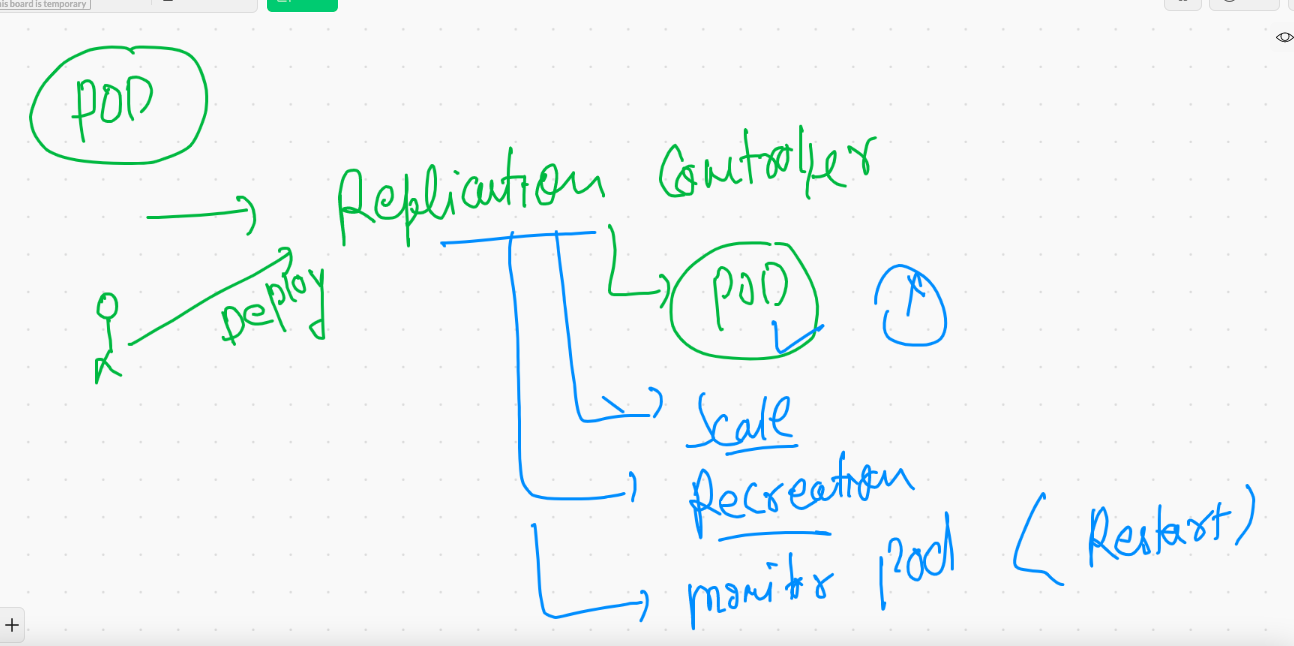 his board is temporary
POD
Replication Controller
Deploy
POD
Scale
Recreation
monitor pod (Restart)